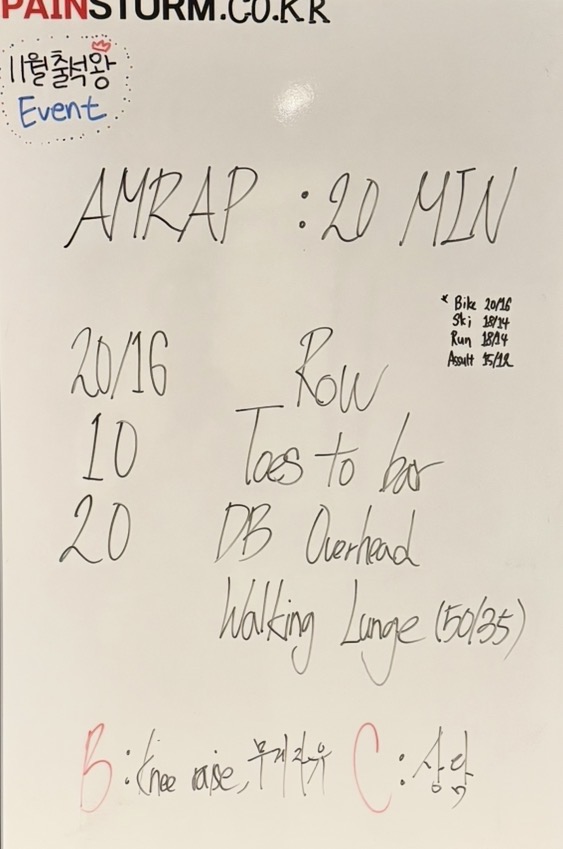 PAINSTORM.CO.KR
11월 출석왕
Event
AMRAP : 20 MIN
* Bike 20/16
Ski 18/14
Run 18/14
Assult 15/12
20/16 Row
10 Toes to bar
20 DB Overhead
Walking Lunge (50/35)
B : Knee raise, 무게 자유 C : 상담